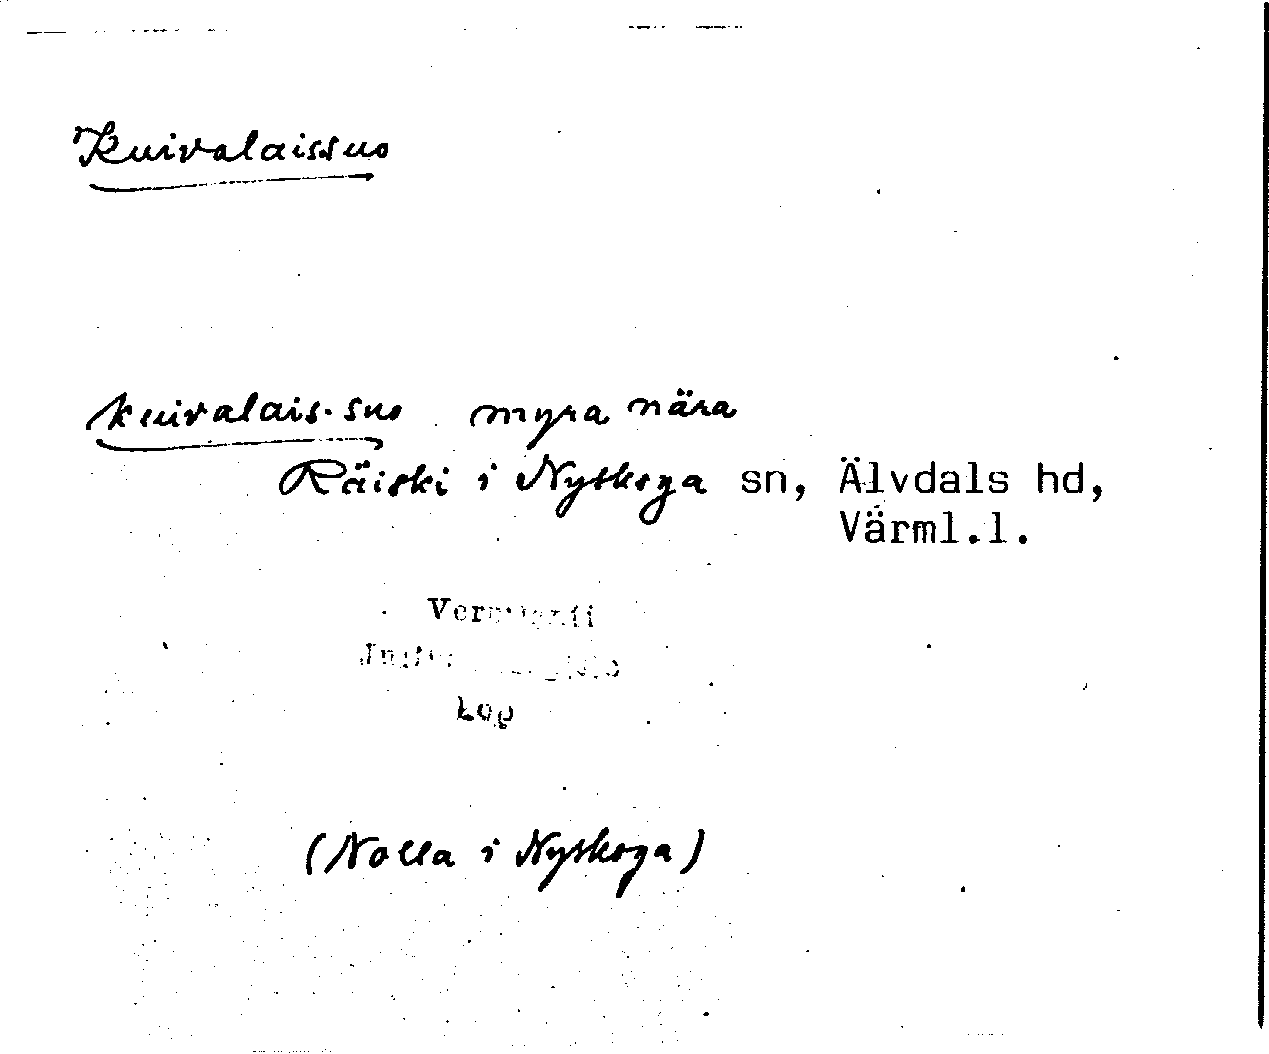 Kuivalaissuo
kuivalais-suo myra nära
Räiski i Nyskoga sn, Älvdals hd,
Värml.l.
(Nolla i Nyskoga)